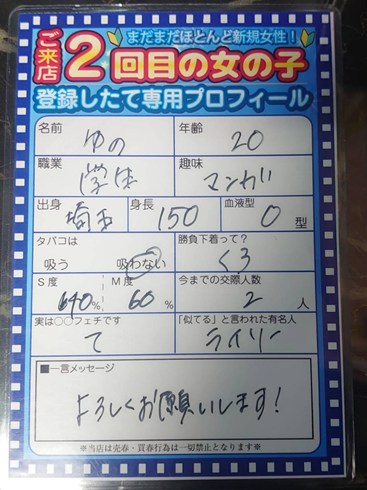 まだまだほとんど新規女性！
ご来店2回目の女の子
登録したて専用プロフィール
名前 ゆの 年齢 20
職業 学生 趣味 マンガ
出身 埼玉 身長 150 血液型 O 型
タバコは 吸う 吸わない 勝負下着って？ くろ
S度 40% M度 60% 今までの交際人数 2人
実は○○フェチです て 「似てる」と言われた有名人 ライリー
■一言メッセージ
よろしくお願いします！
※当店は売春・買春行為は一切禁止となります※